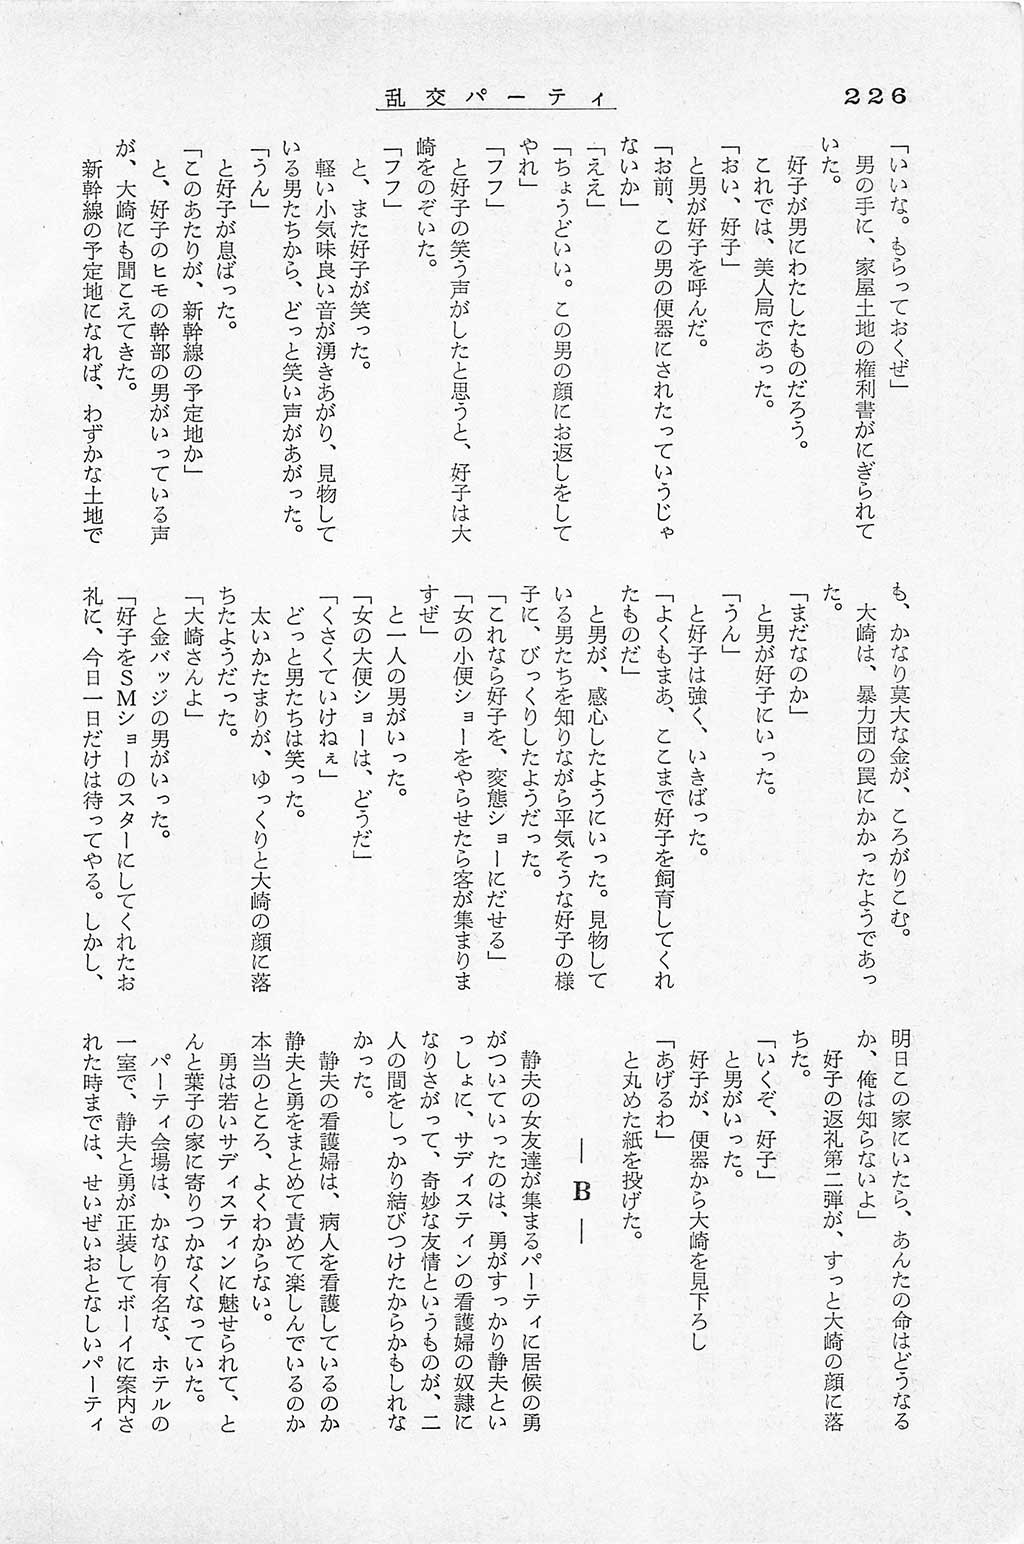 226
乱交パーティ
「いいな。もらっておくぜ」
男の手に、家屋土地の権利書がにぎられて
いた。
好子が男にわたしたものだろう。
これでは、美人局であった。
「おい、好子」
と男が好子を呼んだ。
「お前、この男の便器にされたっていうじゃ
ないか」
「ええ」
「ちょうどいい。この男の顔にお返しをして
やれ」
「フフ」
と好子の笑う声がしたと思うと、好子は大
崎をのぞいた。
「フフ」
と、また好子が笑った。
軽い小気味良い音が湧きあがり、見物して
いる男たちから、どっと笑い声があがった。
「うん」
と好子が息ばった。
「このあたりが、新幹線の予定地か」
と、好子のヒモの幹部の男がいっている声
が、大崎にも聞こえてきた。
新幹線の予定地になれば、わずかな土地で
も、かなり莫大な金が、ころがりこむ。
大崎は、暴力団の罠にかかったようであっ
た。
「まだなのか」
と男が好子にいった。
「うん」
と好子は強く、いきばった。
「よくもまあ、ここまで好子を飼育してくれ
たものだ」
と男が、感心したようにいった。見物して
いる男たちを知りながら平気そうな好子の様
子に、びっくりしたようだった。
「これなら好子を、変態ショーにだせる」
「女の小便ショーをやらせたら客が集まりま
すぜ」
と一人の男がいった。
「女の大便ショーは、どうだ」
「くさくていけねぇ」
どっと男たちは笑った。
太いかたまりが、ゆっくりと大崎の顔に落
ちたようだった。
「大崎さんよ」
と金バッジの男がいった。
「好子をＳＭショーのスターにしてくれたお
礼に、今日一日だけは待ってやる。しかし、
明日この家にいたら、あんたの命はどうなる
か、俺は知らないよ」
好子の返礼第二弾が、すっと大崎の顔に落
ちた。
「いくぞ、好子」
と男がいった。
好子が、便器から大崎を見下ろし
「あげるわ」
と丸めた紙を投げた。
―B―
静夫の女友達が集まるパーティに居候の勇
がついていったのは、勇がすっかり静夫とい
っしょに、サディスティンの看護婦の奴隷に
なりさがって、奇妙な友情というものが、二
人の間をしっかり結びつけたからかもしれな
かった。
静夫の看護婦は、病人を看護しているのか
静夫と勇をまとめて責めて楽しんでいるのか
本当のところ、よくわからない。
勇は若いサディスティンに魅せられて、と
んと葉子の家に寄りつかなくなっていた。
パーティ会場は、かなり有名な、ホテルの
一室で、静夫と勇が正装してボーイに案内さ
れた時までは、せいぜいおとなしいパーティ